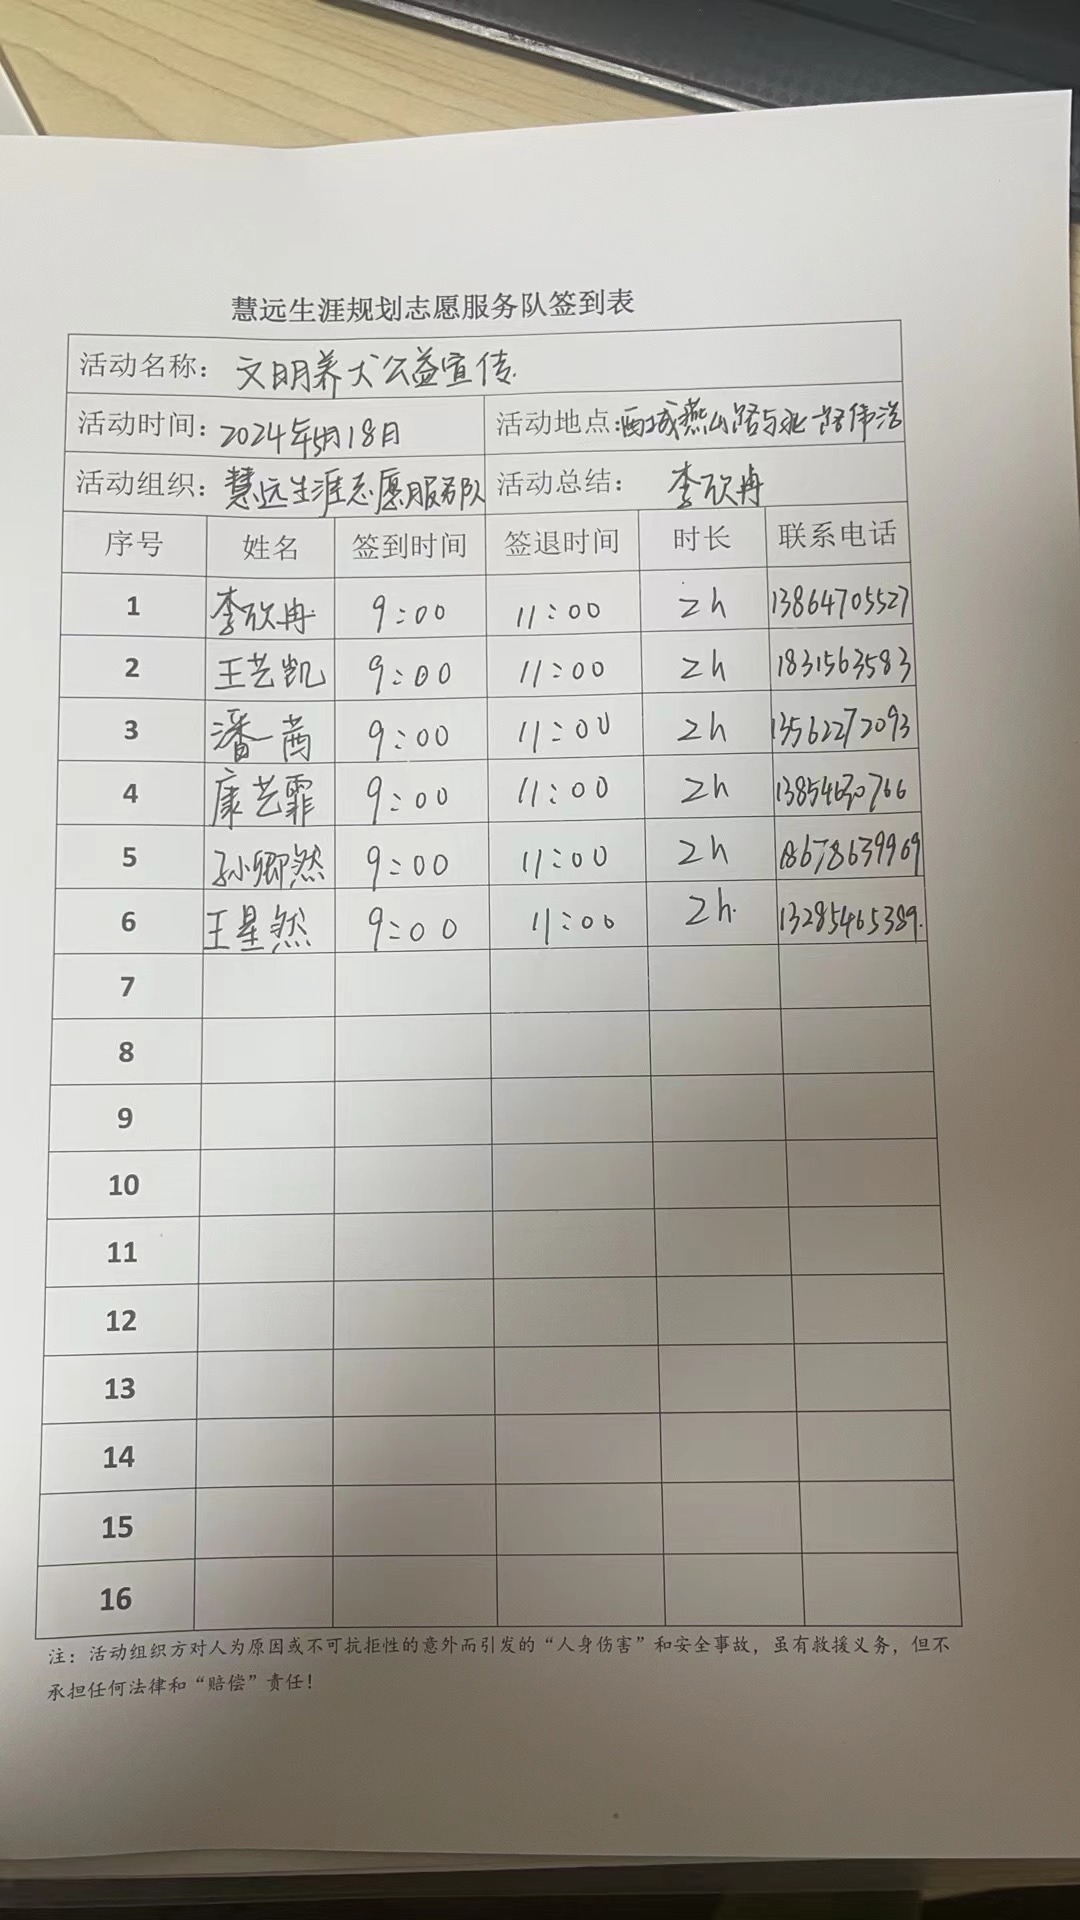 慧远生涯规划志愿服务队签到表
活动名称: 文明养犬公益宣传.
活动时间: 2024年5月18日 活动地点: 西城燕山路与北
活动组织: 慧远生涯志愿服务队 活动总结: 李欣冉
序号 姓名 签到时间 签退时间 时长 联系电话
1 李欣冉 9:00 11:00 2h 13864705527
2 王艺凯 9:00 11:00 2h 1831563583
3 潘一茜 9:00 11:00 2h 13562272093
4 康艺霏 9:00 11:00 2h
5 孙卿然 9:00 11:00 2h 18678639969
6 王星然 9:00 11:00 2h. 13285465389.
7
8
9
10
11
12
13
14
15
16
注：活动组织方对人为原因或不可抗拒性的意外而引发的“人身伤害”和安全事故，虽有救援义务，但不
承担任何法律和“赔偿”责任！